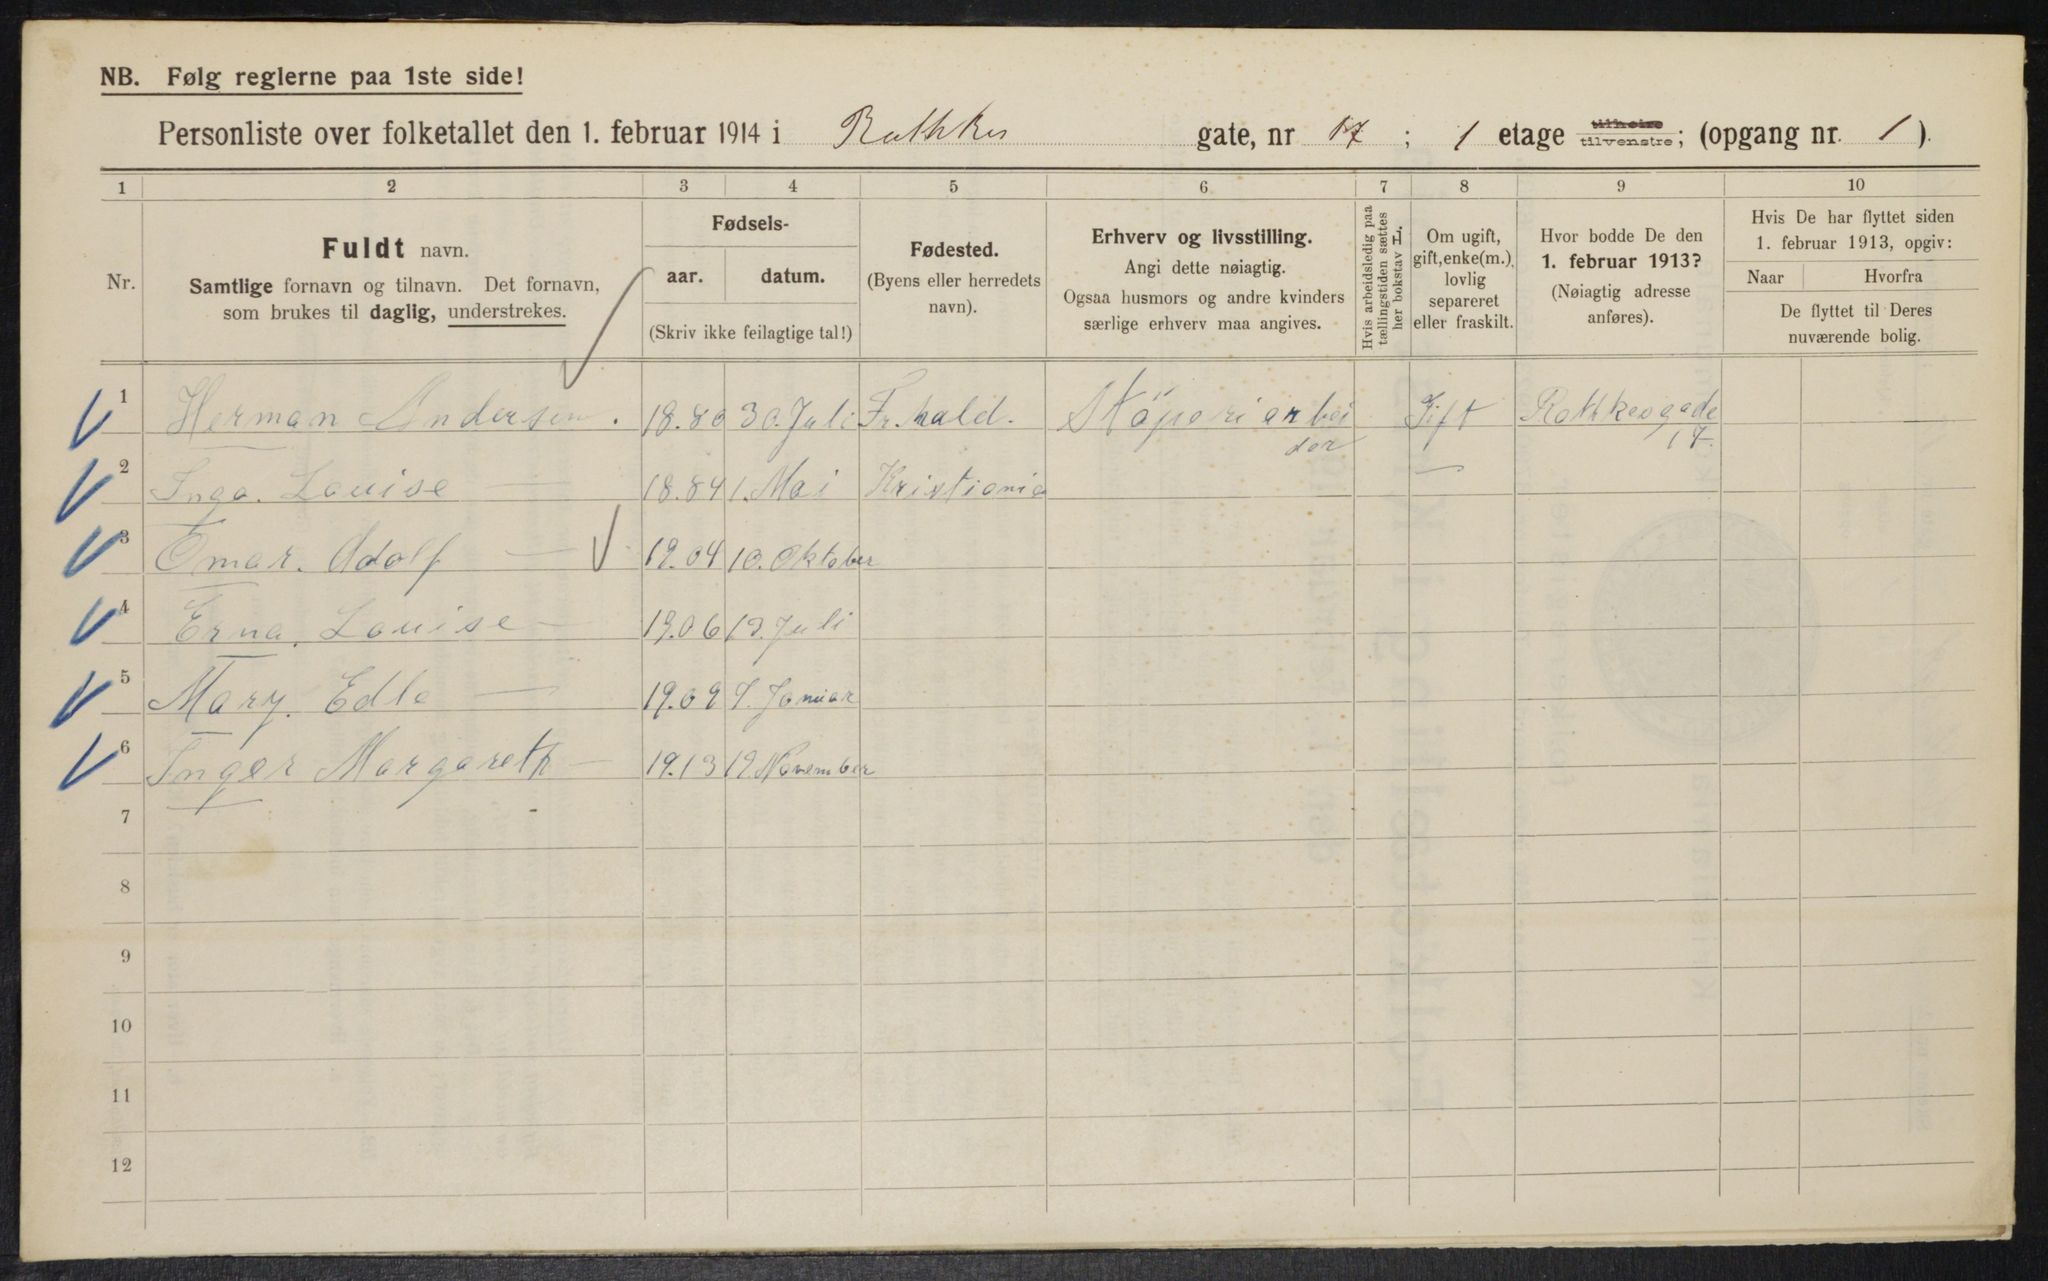 NB. Følg reglerne paa 1ste side!
Personliste over folketallet den 1. februar 1914 i Rathkes gate, nr 17 ; 1 etage tilhøire tilvenstre; (opgang nr. 1 ).
1 2 3 4 5 6 7 8 9 10
Nr.
Fuldt navn.
Samtlige fornavn og tilnavn. Det fornavn,
som brukes til daglig, understrekes.
Fødsels-
aar. datum.
(Skriv ikke feilagtige tal!)
Fødested.
(Byens eller herredets
navn).
Erhverv og livsstilling.
Angi dette nøiagtig.
Ogsaa husmors og andre kvinders
særlige erhverv maa angives.
Hvis arbeidsledig paa
tællingstiden sættes
her bokstav L.
Om ugift,
gift, enke(m.),
lovlig
separeret
eller fraskilt.
Hvor bodde De den
1. februar 1913?
(Nøiagtig adresse
anføres).
Hvis De har flyttet siden
1. februar 1913, opgiv:
Naar Hvorfra
De flyttet til Deres
nuværende bolig.
1 Herman Andersen. 18.80 30. Juli Fr. hald. Stöperiarbei Gift Rathkesgade
der 17.
2 Inga. Louise — 18.84 1. Mai Kristiania —
3 Omar. Adolf — 19.04 10. Oktober
4 Erna. Louise — 19.06 13. Juli
5 Mary. Edle — 19.09 7. Januar
6 Inger Margareth — 19.13 19 November
7
8
9
10
11
12